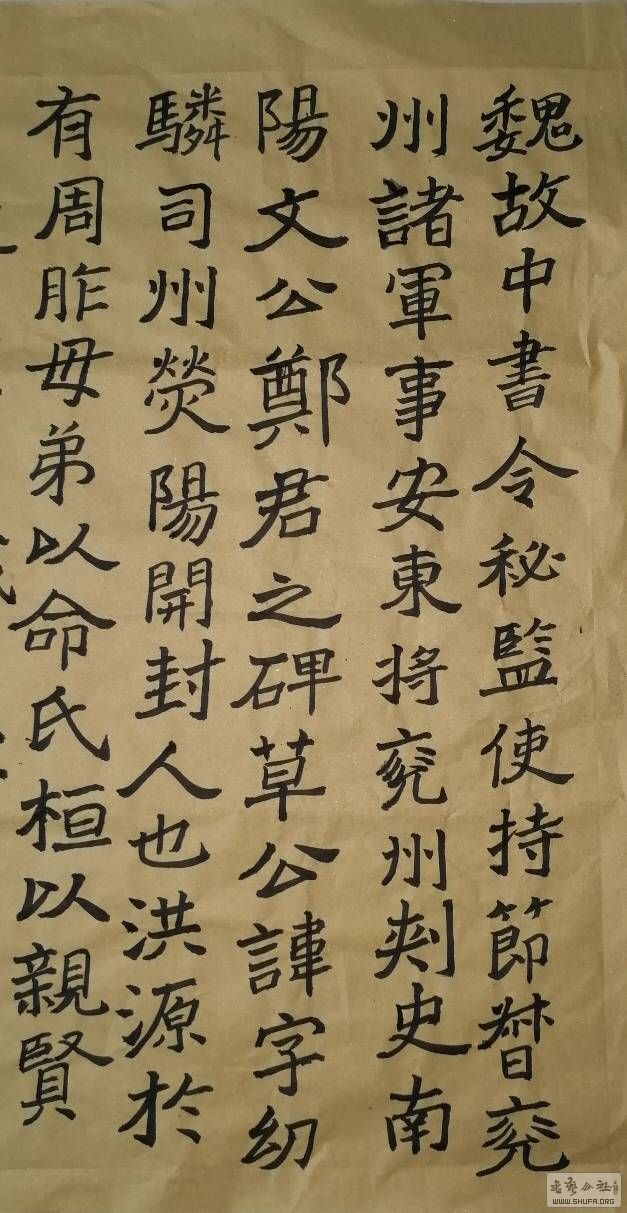 魏故中書令秘監使持節督兗
州諸軍事安東將兗州刺史南
陽文公鄭君之碑草公諱字幼
驎司州熒陽開封人也洪源於
有周胙母弟以命氏桓以親賢
WWW.SHUFA.ORG